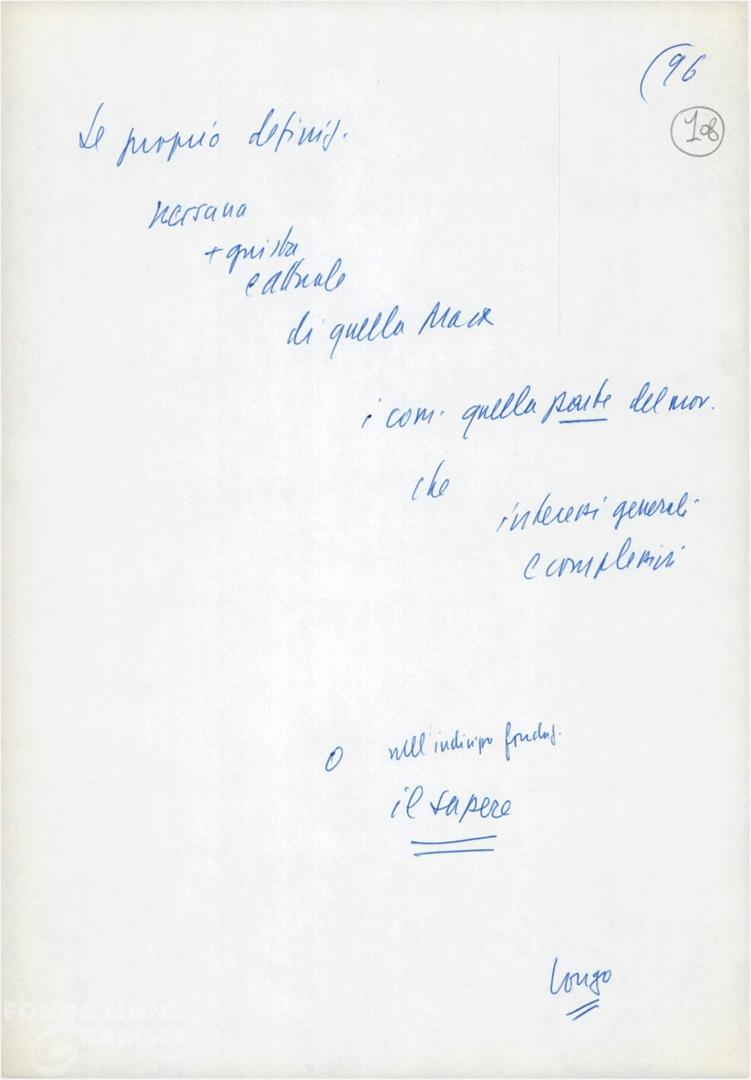 (96
108
Se proprio definiz.
nessuna
+ giusta
e attuale
di quella Marx
i com. quella parte del mov.
che
interessi generali
e complessivi
O nell'indirizzo
il sapere
Longo
FONDAZIONE
GRAMSCI